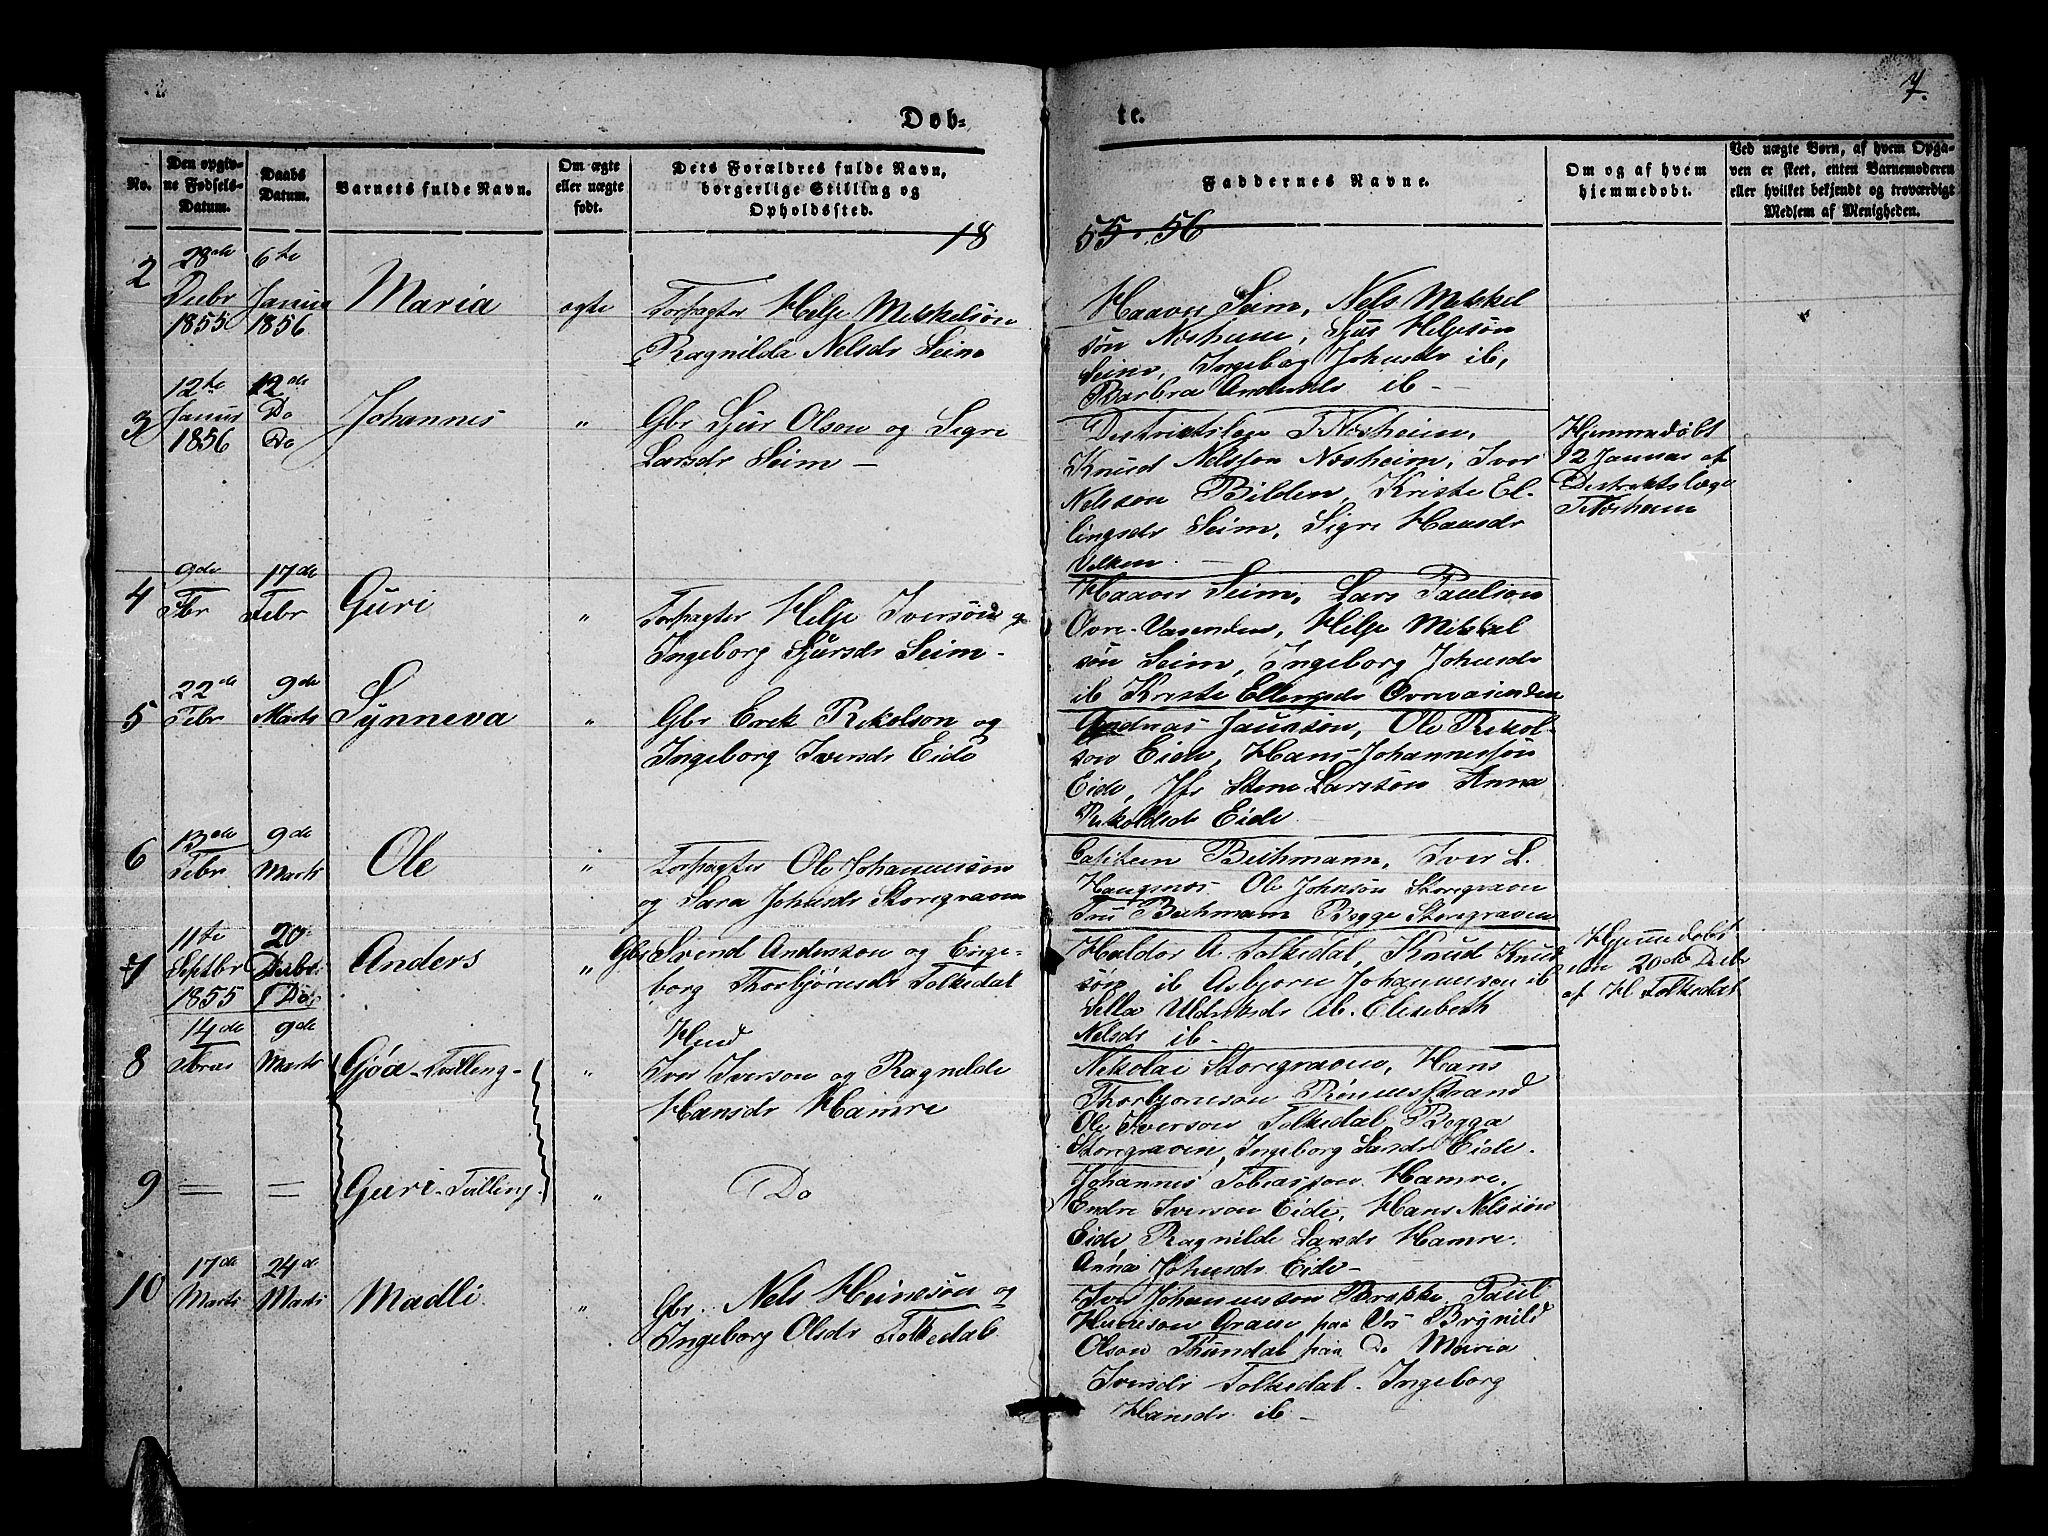 7.
Døb-
te.
No.
Den opgiv-
ne Fødsels-
Datum.
Daabs
Datum.
Barnets fulde Navn.
Om ægte
eller uægte
født.
Dets Forældres fulde Navn,
borgerlige Stilling og
Opholdssted.
Faddernes Navne.
Om og af hvem
hjemmedøbt.
Ved uægte Børn, af hvem Opga-
ven er skeet, enten Barnemoderen
eller hvilket bekjendt og troværdigt
Medlem af Menigheden.
18
55. 56
2
28de
Decbr
1855
6te
Januar
1856
Maria
ægte
Forpagter Helje Mikkelsøn
Ragnilda Nelsdr Seim
Haaver Seim, Nels Mikkel
søn Næsheim, Sjur Heljesøn
Seim, Ingeborg Johnsdr ib,
Barbra Andersdr ib -
3
12te
Januar
1856
12de
Do
Do
Johannes
"
Gbr Sjur Olson og Sigri
Larsdr Seim -
Distriktslæge Næsheim,
Knud Nelsson Næsheim, Iver
Nelsson Bilden, Kriste El-
lingsdr Seim, Sigri Haansdr
Velken -
Hjemmedøbt
12 Januar af
Distriktslæge
Næsheim
4
9de
Fbr
17de
Febr
Guri
"
Forpagter Helje Iversøn og
Ingeborg Sjursdr Seim -
Haaver Seim, Lars Paulson
Øvre-Vasenden, Helje Mikkel
søn Seim, Ingeborg Johnsdr
ib Kristi Ellingsdr Øvrevasenden
5
22de
Febr
9de
Marts
Synneva
"
Gbr Erik Rikolson og
Ingeborg Iversdr Eide
Andreas Jansøn, Ole Rikol-
son Eide, Hans Johannessøn
Eide, Jfr Stine Larssøn Anna
Rikoldsdr Eide
6
13de
Febr
9de
Marts
Ole
"
Forpagter Ole Johannessøn
og Sara Johnsdr Storegraven
Capitein Bechmann, Iver L.
Haugsnæs Ole Johnsøn Storegraven
Fru Bechmann Bogge Storegraven
7
11te
Septbr
1855
20de
Decbr
Do
Anders
"
Gbr Svend Anderson og Enge-
borg Thorbjørnsdr Folkedal
Haldor A. Folkedal, Knud Knud
søn ib Asbjørn Johannessøn ib
Sella Uldriksdr ib. Elisabeth
Nelsdr ib. -
Hjemmedøbt
den 20de Decbr
af H. Folkedal
8
14de
Fbruar
9de
Marts
Gjøa - Tvilling -
"
Hmd
Iver Iverson og Ragnilde
Hansdr Hamre
Nikolai Storegraven, Hans
Thorbjørnsøn Rønnestrand
Ole Iverson Folkedal, Bogga
Storegraven, Ingeborg Larsdr Eide.
9
=
=
Guri - Tvilling -
"
Do
Johannes Tobiassøn Hamre,
Endre Iverson Eide, Hans Nelssøn
Eide Ragnilde Larsdr Hamre.
Anna Johnsdr Eide -
10
17de
Marts
24de
Marts
Madli.
"
Gbr. Nels Heinesøn og
Ingeborg Olsdr Folkedal
Iver Johannesson Brakke, Paul
Hansson Graue paa Vos Brynild
Olson Thundal paa Do Maria
Iversdr Folkedal. Ingeborg
Hansdr ib -